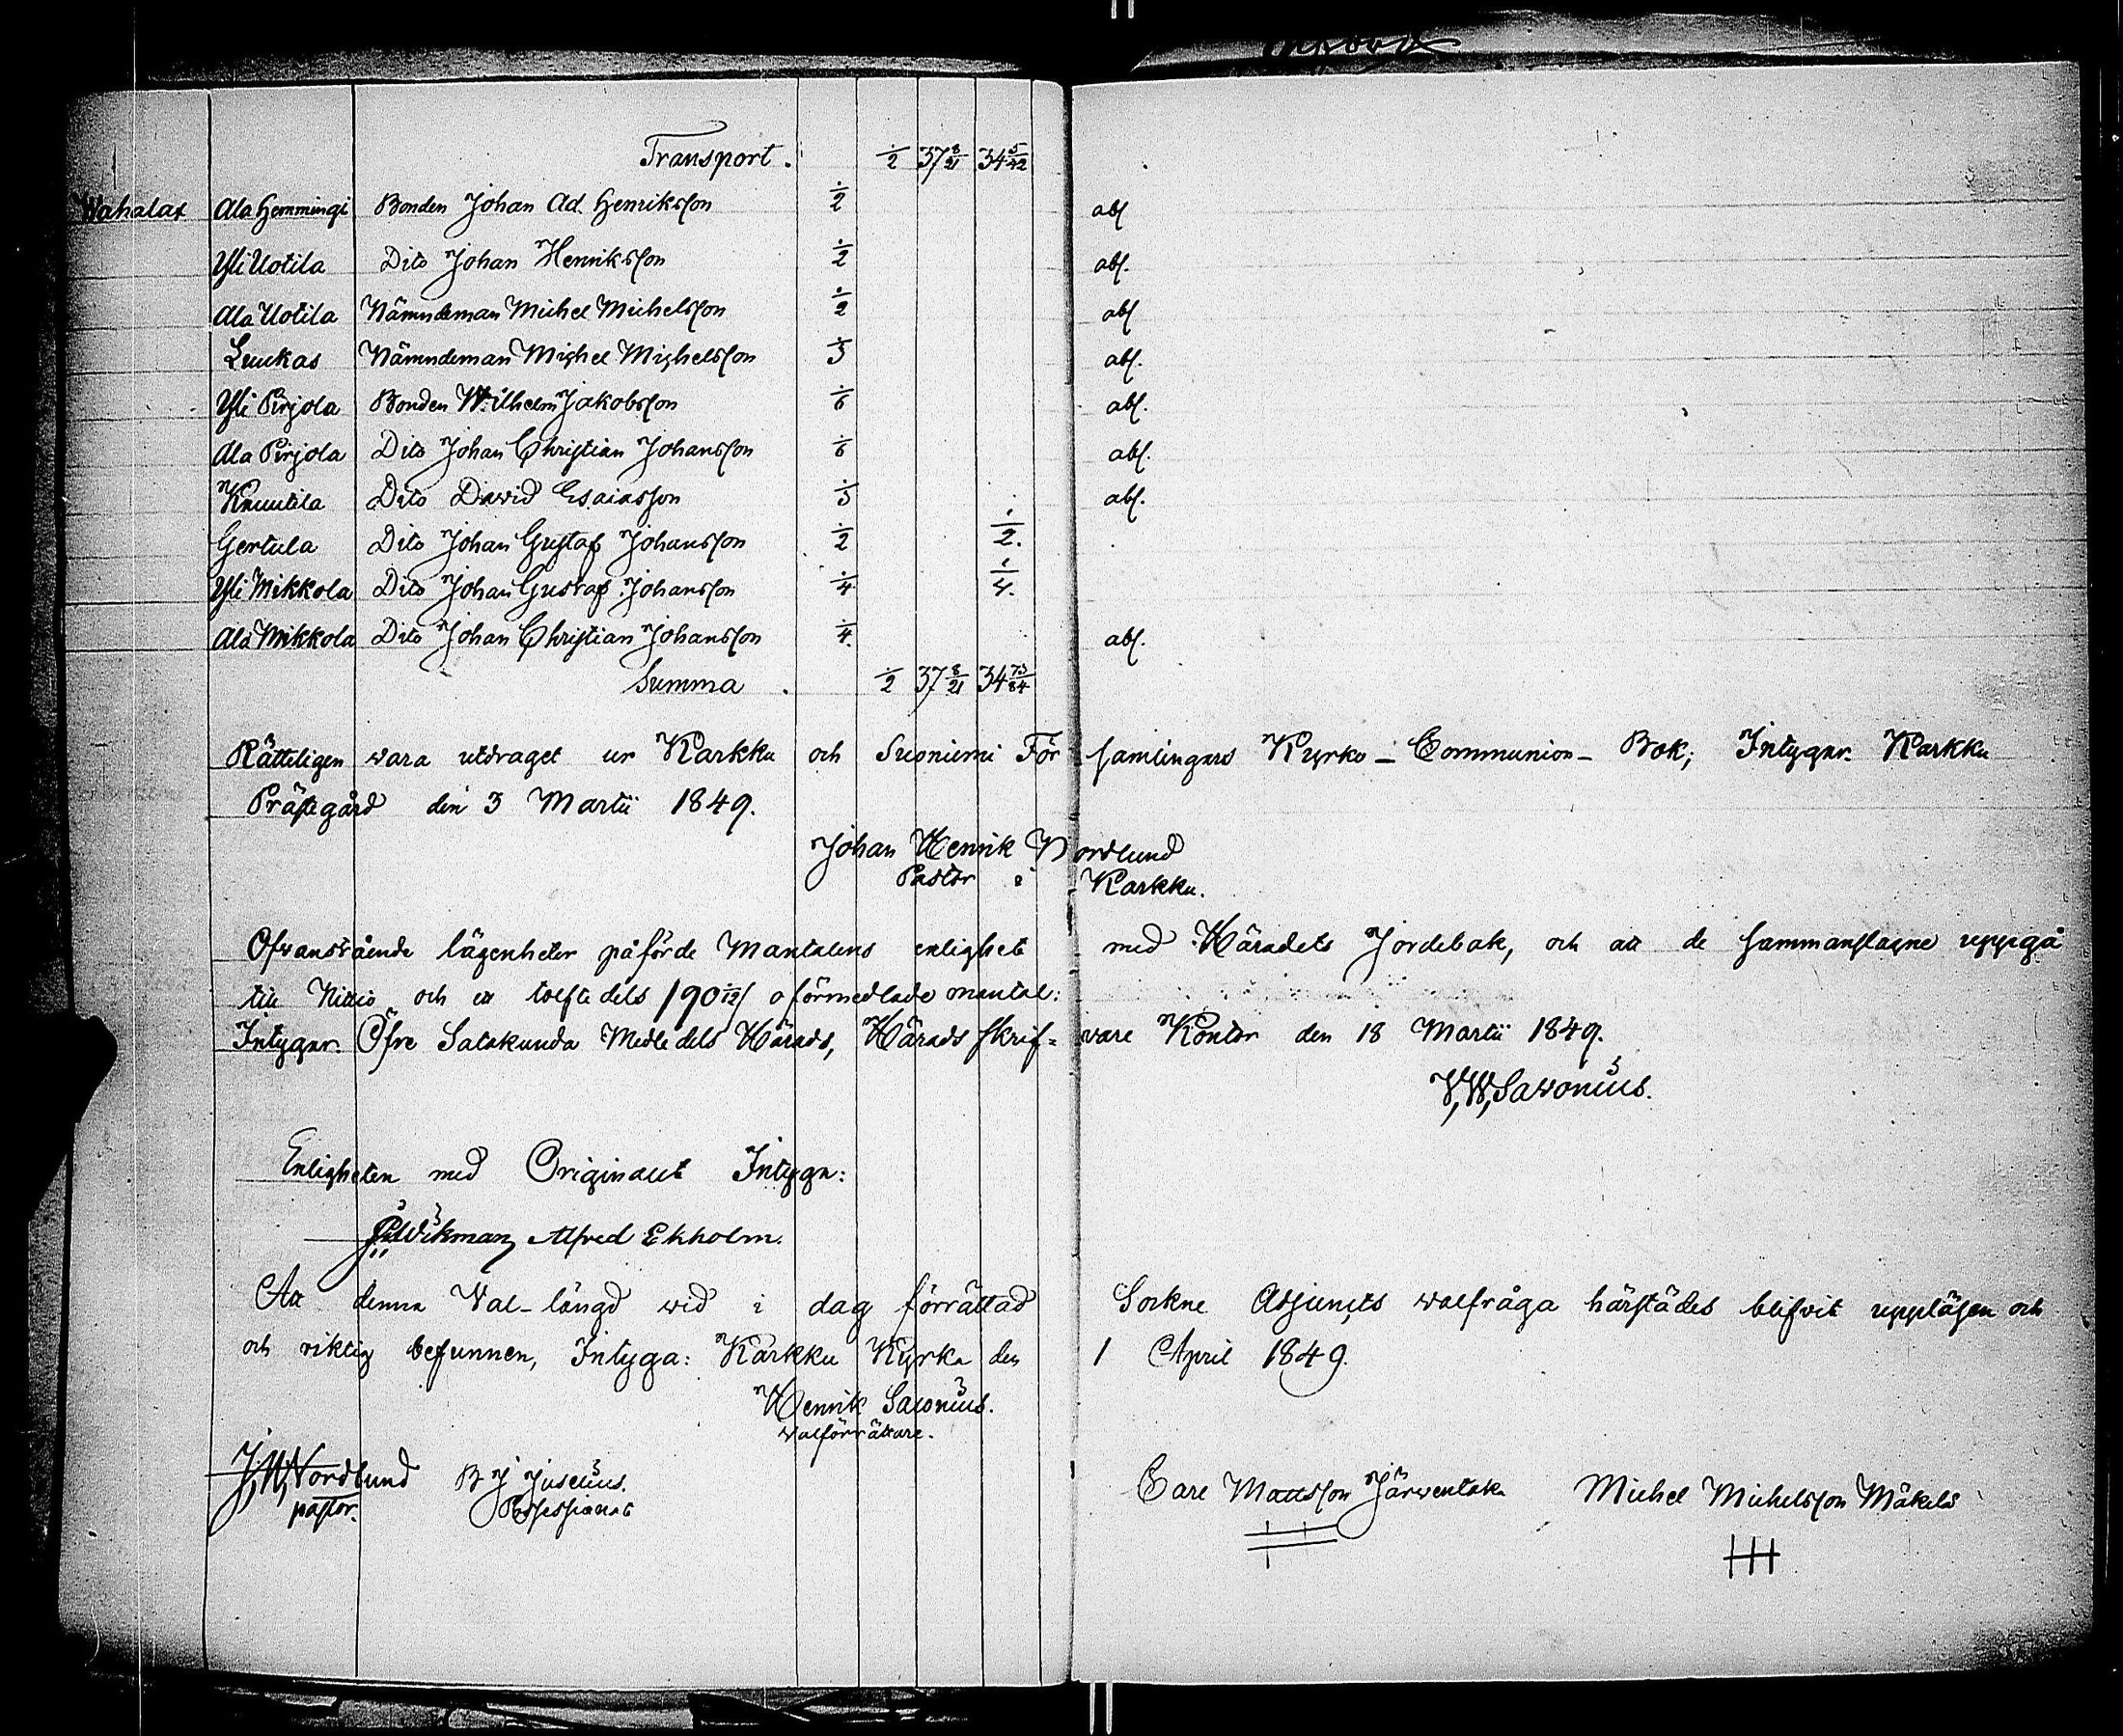 Transport. ½ 37 8/21 34 5/42
Wahalax Ala Hemmingi Bonden Johan Ad. Henriksson ½ abs
Yli Uotila Dito Johan Henriksson ½ abs.
Ala Uotila Nämndeman Michel Michelsson ½ abs
Luukas Nämndeman Mighel Mighelsson ⅓ abs.
Yli Pirjola Bonden Wilhelm Jakobsson ⅙ abs.
Ala Pirjola Dito Johan Christian Johansson ⅙ abs.
Knuutila Dito David Esaiasson ⅓ abs.
Gertula Dito Johan Gustaf Johansson ½ ½.
Yli Mikkola Dito Johan Gustaf Johansson ¼ ¼.
Ala Mikkola Dito Johan Christian Johansson ¼. abs.
Summa. ½ 37 8/21 34 73/84
Rätteligen wara utdraget ur Karkku och Suoniemi För samlingars Kyrko - Communion - Bok; Intygar. Karkku
Prästegård den 3 Martii 1849.
Johan Henrik Nordlund
Pastor i Karkku.
Ofvanstående lägenheter påförde Mantalens enlighet med Häradets Jordebok, och att de sammanslagne uppgå
till Nittio och en tolftedels /90 1/12/ oförmedlade mantal:
Intygar. Öfre Satakunda Medledels Härads, Härads skrif= vare Kontor den 18 Martii 1849.
V, W, Savonius.
Enligheten med Originalet Intyga:
Wikman, Alfred Ekholm.
Att denna Val-längd wid i dag förrättad Sockne Adjunçts walfråga härstädes blifvit uppläsen och
och riktig befunnen, Intyga: Karkku Kyrka den 1 April 1849.
Henrik Savonius.
valförrättare.
J, H, Nordlund B J Juselius. Carl Mattsson Järventaka Michel Michelsson Mäkelä
pastor. Possessionat